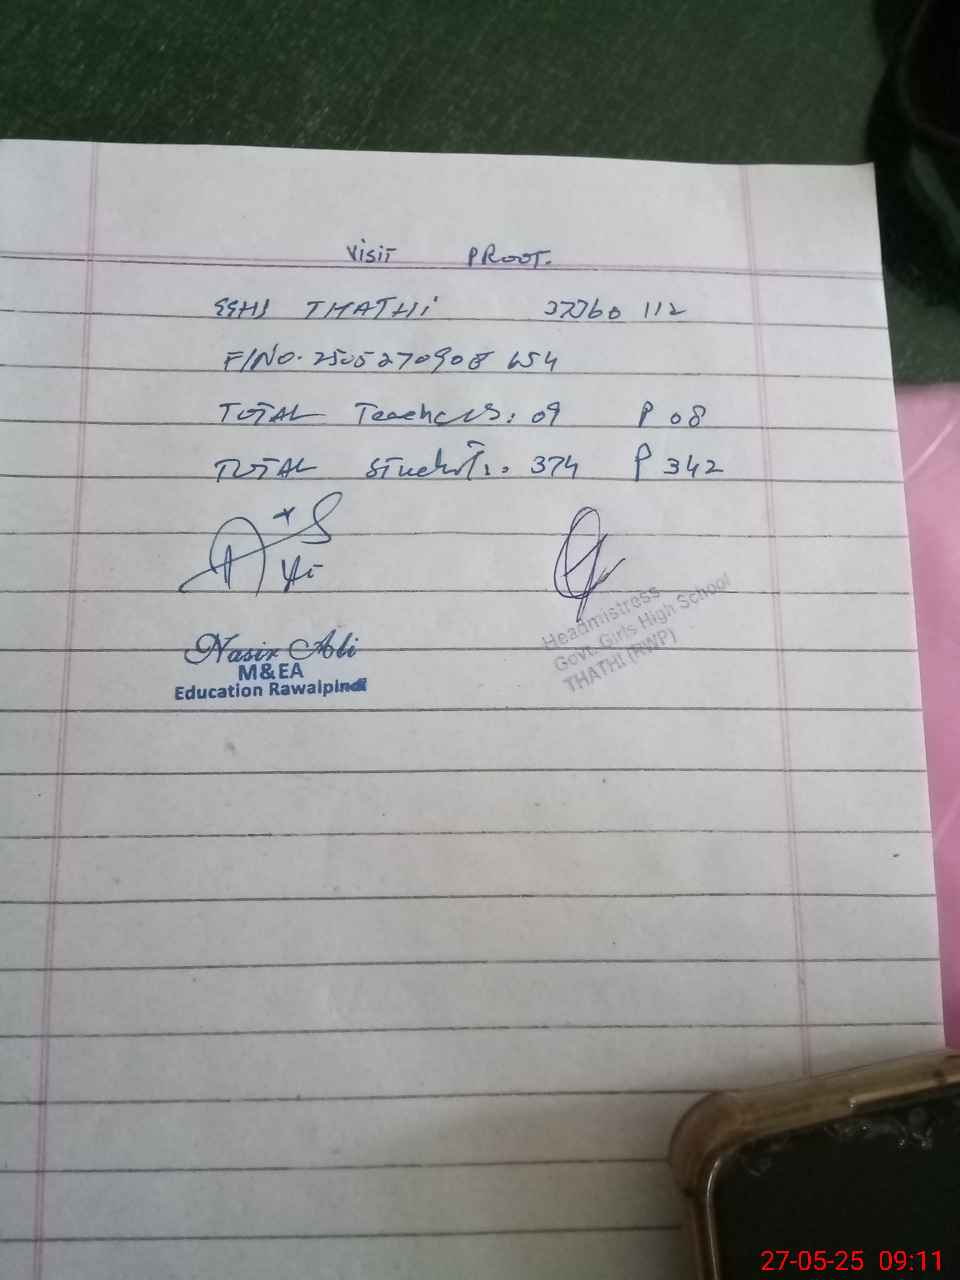 Visit PROOF.
GGHS THATHI 37360 112
F/NO. 2505270908 654
TOTAL Teachers: 09 P 08
TOTAL Students: 374 P 342
Nasir Ali
M&EA
Education Rawalpindi
Headmistress
Govt. Girls High School
THATHI (RWP)
27-05-25 09:11